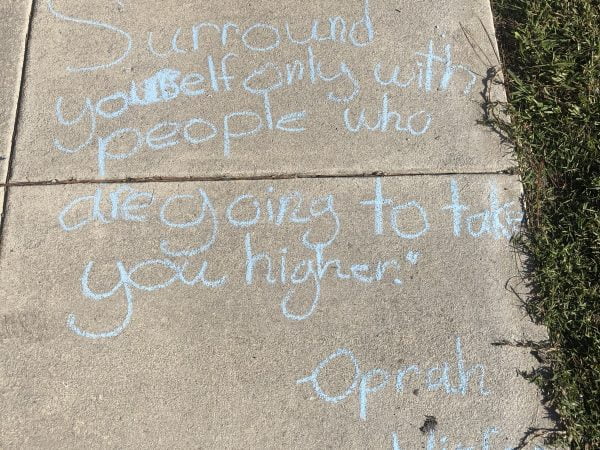 Surround
yourself only with
people who
are going to take
you higher."
-Oprah